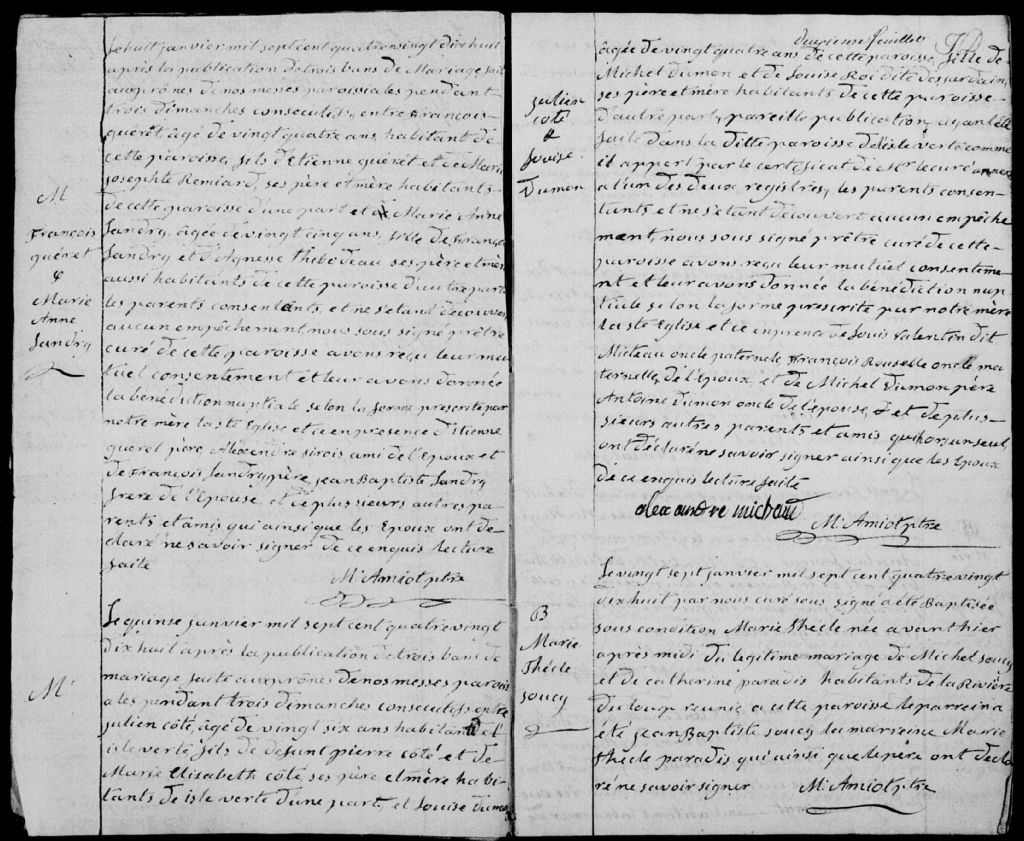 M
François
guéret
&
Marie
Anne
Landry
Le huit janvier mil sept cent quatre vingt dix huit
après la publication de trois bans de Mariage fait
aux prônes de nos messes paroissiales pendant
trois dimanches consecutifs, entre François
guéret âgé de vingt quatre ans habitant de
cette paroisse, fils d'Etienne guéret et de Marie
josephte Remiard, ses père et mère habitants
de cette paroisse d'une part et de Marie Anne
Landry, âgée de vingt cinq ans, fille de François
Landry et d'Agnesse Thébedeau ses père et mère
aussi habitants de cette paroisse d'autre part
les parents consentants, et ne s'etant decouvert
aucun empêchement, nous sous signé prêtre
curé de cette paroisse avons reçu leur mu
tuel consentement et leur avons donnée
la bénédiction nuptiale selon la forme prescrite par
notre mère la ste Eglise et ce en presence d'Etienne
guéret père, Alexendre sirois ami de l'Epoux et
de François Landry père, jean Baptiste Landry
frere de l'Epouse, et de plusieurs autres pa
rents et amis qui ainsi que les Epoux ont de
claré ne savoir signer de ce enquis lecture
faite
M. Amiot ptre
M.
Le quinse janvier mil sept cent quatre vingt
dix huit après la publication de trois bans de
mariage faite aux prônes de nos messes parois
ales pendant trois dimanches consecutifs entre
julien côté, âgé de vingt six ans habitant de l'
isle verte, fils de defunt pierre côté et de
Marie Elisabeth côté, ses père et mère habi
tants de isle verte d'une part, et Louise Dumon
deuxieme feuillet
julien
coté
&
Louise
Dumon
âgée de vingt quatre ans de cette paroisse, fille de
Michel Dumon et de Louise Roi dite desjardain,
ses père et mère habitants de cette paroisse
d'autre part, pareille publication ayant été
faite dans la ditte paroisse de l'isle verte comme
il appert par le certificat de Mr. le curé annexé
a l'un des deux registres, les parents consen
tants et ne s'etant découvert aucun empêche
ment, nous sous signé prêtre curé de cette
paroisse avons reçu leur mutuel consenteme
nt et leur avons donnée la bénédiction nup
tiale selon la forme prescrite par notre mère
la ste Eglise et ce en presence de Louis Valentin dit
Miteau oncle paternele François Rouselle oncle ma
ternelle, de l'Epoux, et de Michel Dumon père
Antoine Dumon oncle de l'épouse, et de plus
sieurs autres parents et amis qui hors un seul
ont déclaré ne savoir signer ainsi que les Epoux
de ce enquis lecture faite
alexandre michaud
M. Amiot ptre
B
Marie
Thécle
soucy
Le vingt sept janvier mil sept cent quatre vingt
dix huit par nous curé sous signé a été Baptisée
sous condition Marie Thecle née avant hier
après midi du legitime mariage de Michel soucy
et de catherine paradis habitants de la Rivière
du loup reunie a cette paroisse le parrein a
été jean Baptiste soucy la marreine Marie
thecle paradis qui ainsi que le père ont decla
ré ne savoir signer
M. Amiot ptre